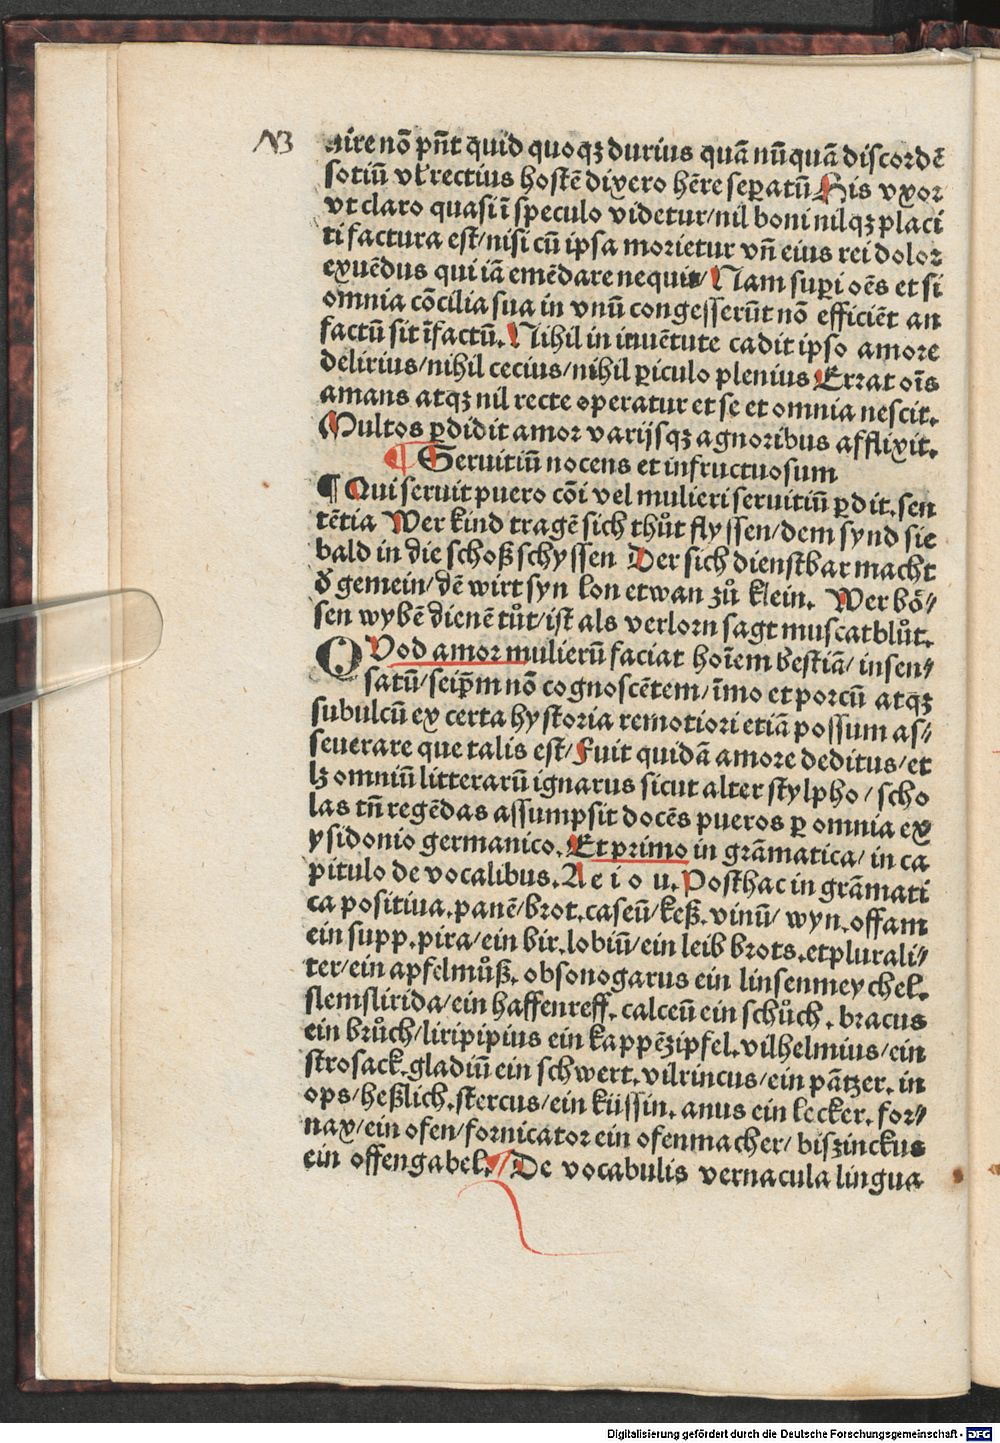 NB
nire nõ pñt quid quoqꝫ durius quã nũquã discordẽ
sotiũ vl rectius hostẽ dixero hẽre seꝑatũ His vxor
vt claro quasi ĩ speculo videtur/nil boni nilqꝫ placi
ti factura est/nisi cũ ipsa morietur vñ eius rei dolor
exuẽdus qui iã emẽdare nequit/Nam suꝑi oẽs et si
omnia cõcilia sua in vnũ congesserũt nõ efficiẽt an
factũ sit ĩfactũ. Nihil in iuuẽtute cadit ipso amore
delirius/nihil cecius/nihil ꝑiculo plenius Errat oĩs
amans atqꝫ nil recte operatur et se et omnia nescit.
Multos ꝑdidit amor varijsqꝫ agnoribus afflixit.
¶ Seruitiũ nocens et infructuosum
¶ Qui seruit puero cõi vel mulieri seruitiũ ꝑdit. sen
tẽtia Wer kind tragẽ sich thůt flyssen/dem synd sie
bald in die schoß schyssen Der sich dienstbar macht
ď gemein/dẽ wirt syn lon etwan zů klein. Wer bö⸗
sen wybẽ dienẽ tůt/ist als verlorn sagt muscatblůt.
QVod amor mulierũ faciat hoĩem bestiã/insen⸗
satũ/seip̃m nõ cognoscẽtem/ĩmo et porcũ atqꝫ
subulcũ ex certa hystoria remotiori etiã possum as⸗
seuerare que talis est/Fuit quidã amore deditus/et
lꝫ omniũ litterarũ ignarus sicut alter stylpho/scho
las tñ regẽdas assumpsit docẽs pueros ꝑ omnia ex
ysidonio germanico. Et primo in grãmatica/in ca
pitulo de vocalibus. A e i o u. Posthac in grãmati
ca positiua. panẽ/brot. caseũ/keß. vinũ/wyn. offam
ein supp. pira/ein bir. lobiũ/ein leib brots. et plurali⸗
ter/ein apfelmůß. obsonogarus ein linsenmeychel.
slemslirida/ein haffenreff. calceũ ein schůch. bracus
ein brůch/liripipius ein kappẽzipfel. vilhelmius/ein
strosack. gladiũ ein schwert. vilrincus/ein pãtzer. in
ops/heßlich. stercus/ein küssin. anus ein lecker. for⸗
nax/ein ofen/fornicator ein ofenmacher/biszinckus
ein offengabel. ¶ De vocabulis vernacula lingua
Digitalisierung gefördert durch die Deutsche Forschungsgemeinschaft - DFG